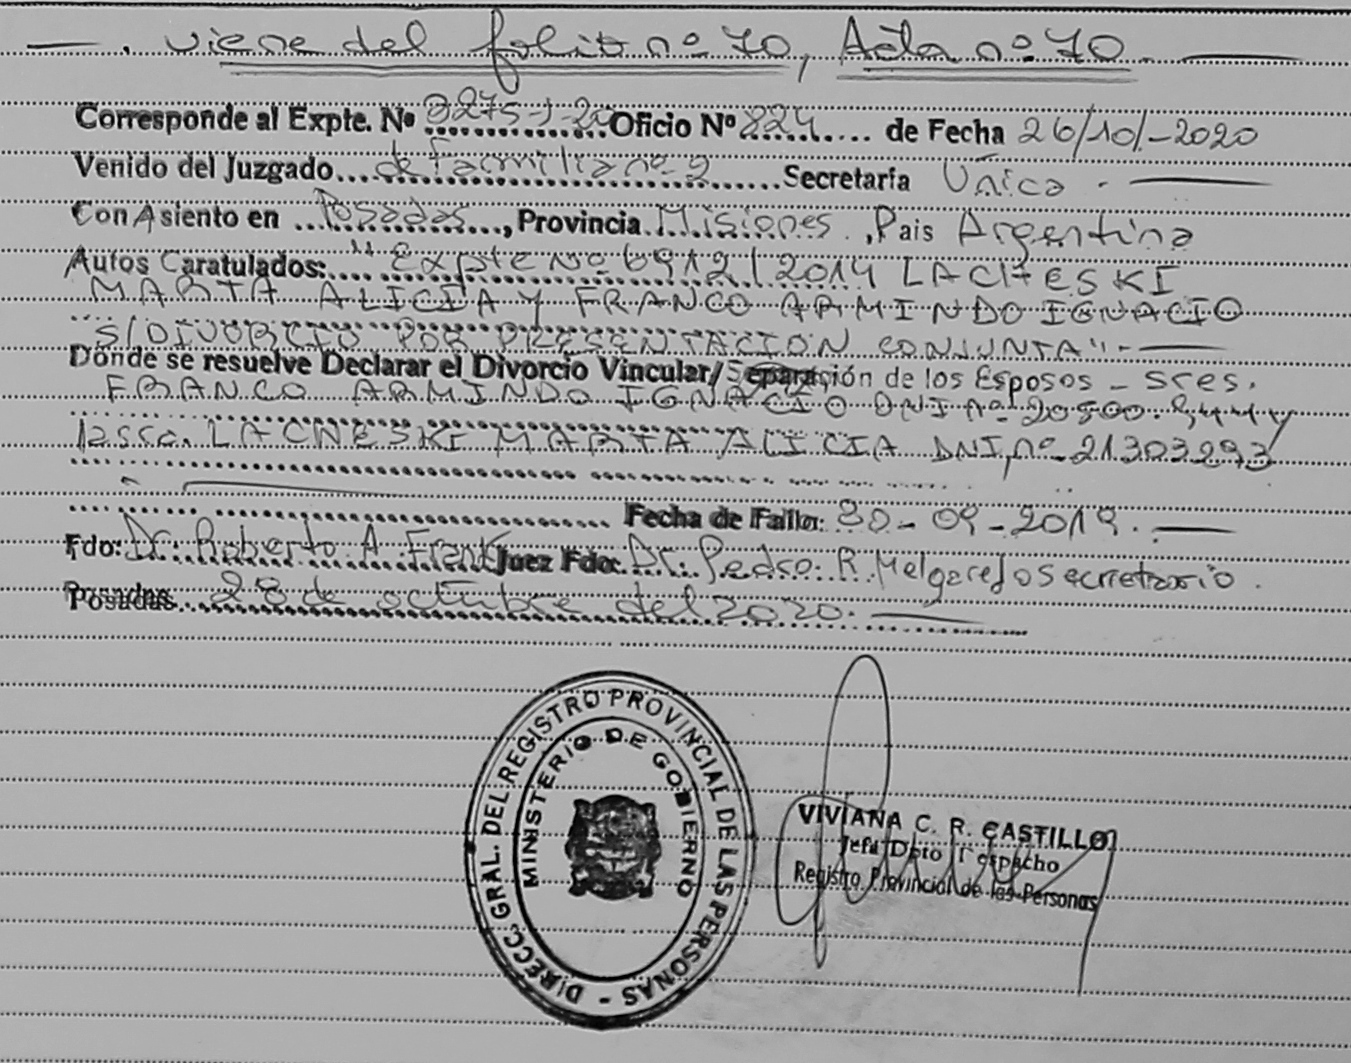 — . viene del folio nº 70, Acta nº 70. —
Corresponde al Expte. Nº 3275-J-20 Oficio Nº 224 de Fecha 26/10/-2020
Venido del Juzgado de familia nº 2 Secretaría Única . —
Con Asiento en Posadas, Provincia Misiones, Pais Argentina
Autos Caratulados: "Expte Nº 6912/2014 LACHESKI
MARTA ALICIA Y FRANCO ARMINDO IGNACIO
S/DIVORCIO POR PRESENTACION CONJUNTA".- —
Donde se resuelve Declarar el Divorcio Vincular/Separación de los Esposos - Sres.
FRANCO ARMINDO IGNACIO DNI nº 20.800. y
la Sra. LACNESKI MARTA ALICIA DNI, nº 21303293
Fecha de Fallo: 30-09-2019. —
Fdo: Dr. Roberto A. Frank Juez Fdo: Dr. Pedro R. Melgarejo Secretario.
Posadas 28 de octubre del 2020. —
DIRECC. GRAL. DEL REGISTRO PROVINCIAL DE LAS PERSONAS -
MINISTERIO DE GOBIERNO
VIVIANA C. R. CASTILLO
Jefa Dpto Despacho
Registro Provincial de las Personas